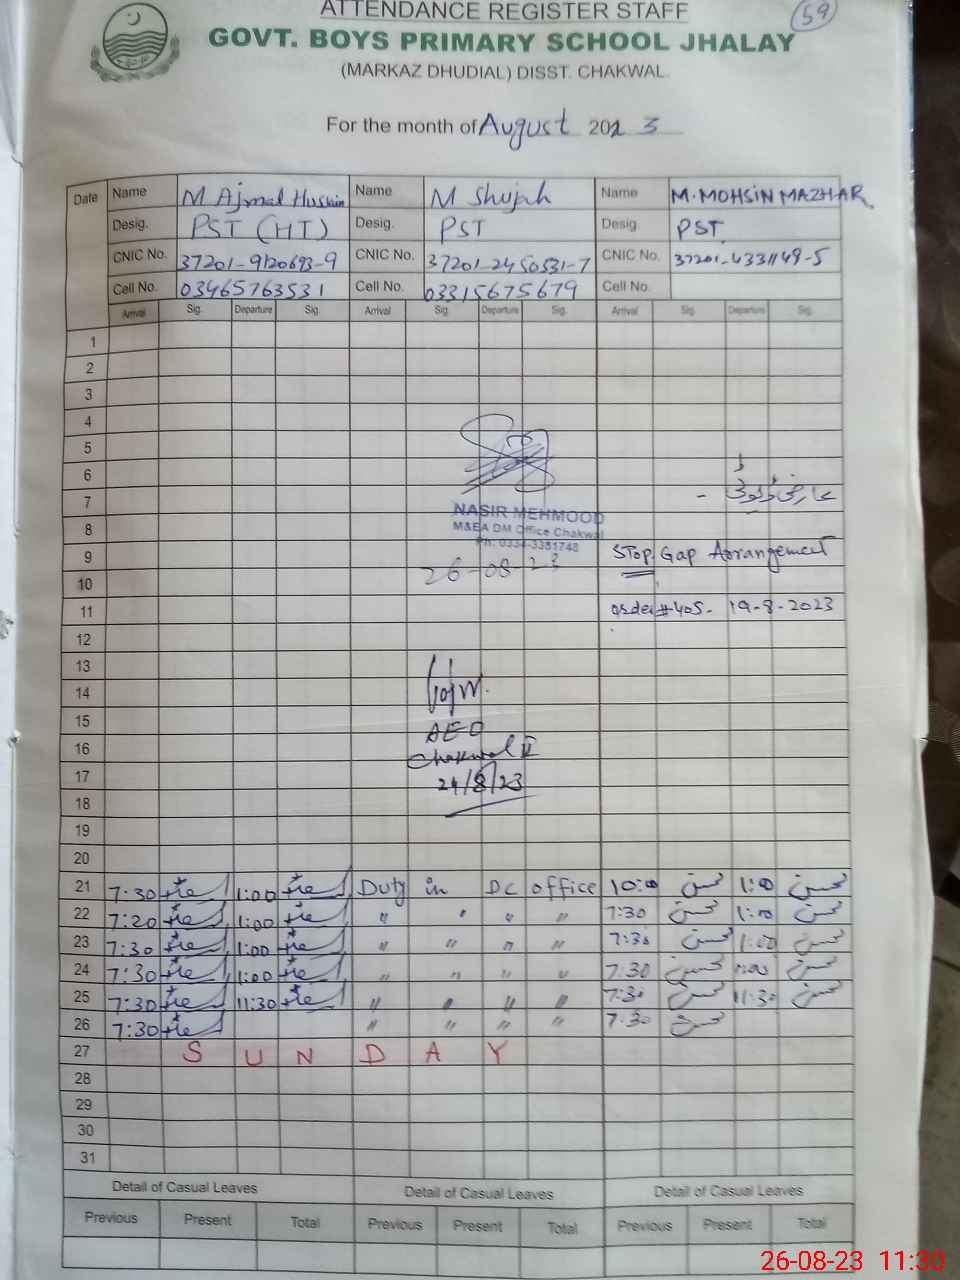 ATTENDANCE REGISTER STAFF
59
GOVT. BOYS PRIMARY SCHOOL JHALAY
(MARKAZ DHUDIAL) DISST. CHAKWAL
For the month of August 2023
Date Name M Ajmal Hussain Name M Shujah Name M. MOHSIN MAZHAR
Desig. PST (HT) Desig. PST Desig. PST
CNIC No. 37201-9120693-9 CNIC No. 37201-2450531-7 CNIC No. 37201-4331149-5
Cell No. 03465763531 Cell No. 03315675679 Cell No.
Arrival Sig. Departure Sig. Arrival Sig. Departure Sig. Arrival Sig. Departure Sig.
1
2
3
4
5
6
7 عارضی ڈیوٹی -
NASIR MEHMOOD
8 M&EA DM Office Chakwal
Ph: 0334-3381748
9 STop Gap Arrangement
10 26-08-23
11 order # 405- 19-8-2023
12
13
14
15
AEO
16 Chakwal II
17 24/8/23
18
19
20
21 7:30 1:00 Duty in DC office 10:00 محسن 1:00 محسن
22 7:20 1:00 〃 〃 〃 〃 7:30 محسن 1:00 محسن
23 7:30 1:00 〃 〃 〃 〃 7:30 محسن 1:00 محسن
24 7:30 1:00 〃 〃 〃 〃 7:30 محسن 1:00 محسن
25 7:30 11:30 〃 〃 〃 〃 7:30 محسن 11:30 محسن
26 7:30 〃 〃 〃 〃 7:30 محسن
27 SUNDAY
28
29
30
31
Detail of Casual Leaves Detail of Casual Leaves Detail of Casual Leaves
Previous Present Total Previous Present Total Previous Present Total
26-08-23 11:30